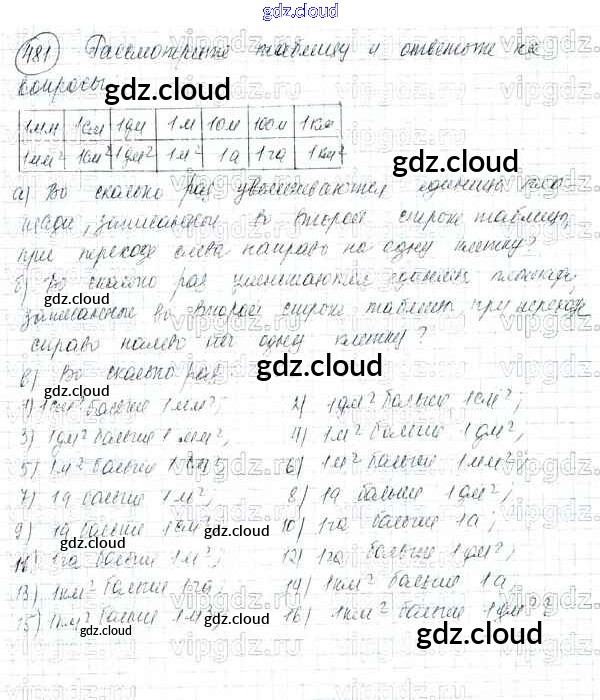 gdz.cloud
481 Рассмотрите таблицу и ответьте на
вопросы
gdz.cloud
1мм 1см 1дм 1м 10м 100м 1км
1мм² 1см² 1дм² 1м² 1а 1га 1км²
gdz.cloud
а) Во сколько раз увеличиваются единицы пло
щади, записанной во второй строке таблицы,
при переходе слева направо на одну клетку?
б) Во сколько раз уменьшаются единицы площади,
gdz.cloud
записанные во второй строке таблицы при переходе
справо налево на одну клетку?
gdz.cloud
в) Во сколько раз
gdz.cloud
1) 1см² больше 1мм²; 2) 1дм² больше 1см²;
3) 1дм² больше 1мм²; 4) 1м² больше 1дм²;
5) 1м² больше 1см²; 6) 1м² больше 1мм²;
gdz.cloud
7) 1а больше 1м²; 8) 1а больше 1дм²;
9) 1а больше 1см² 10) 1га больше 1а;
gdz.cloud
11) 1га больше 1м²; 12) 1га больше 1дм²;
13) 1км² больше 1га; 14) 1км² больше 1а
15) 1км² больше 1м²; 16) 1км² больше 1дм²?
gdz.cloud
gdz.cloud